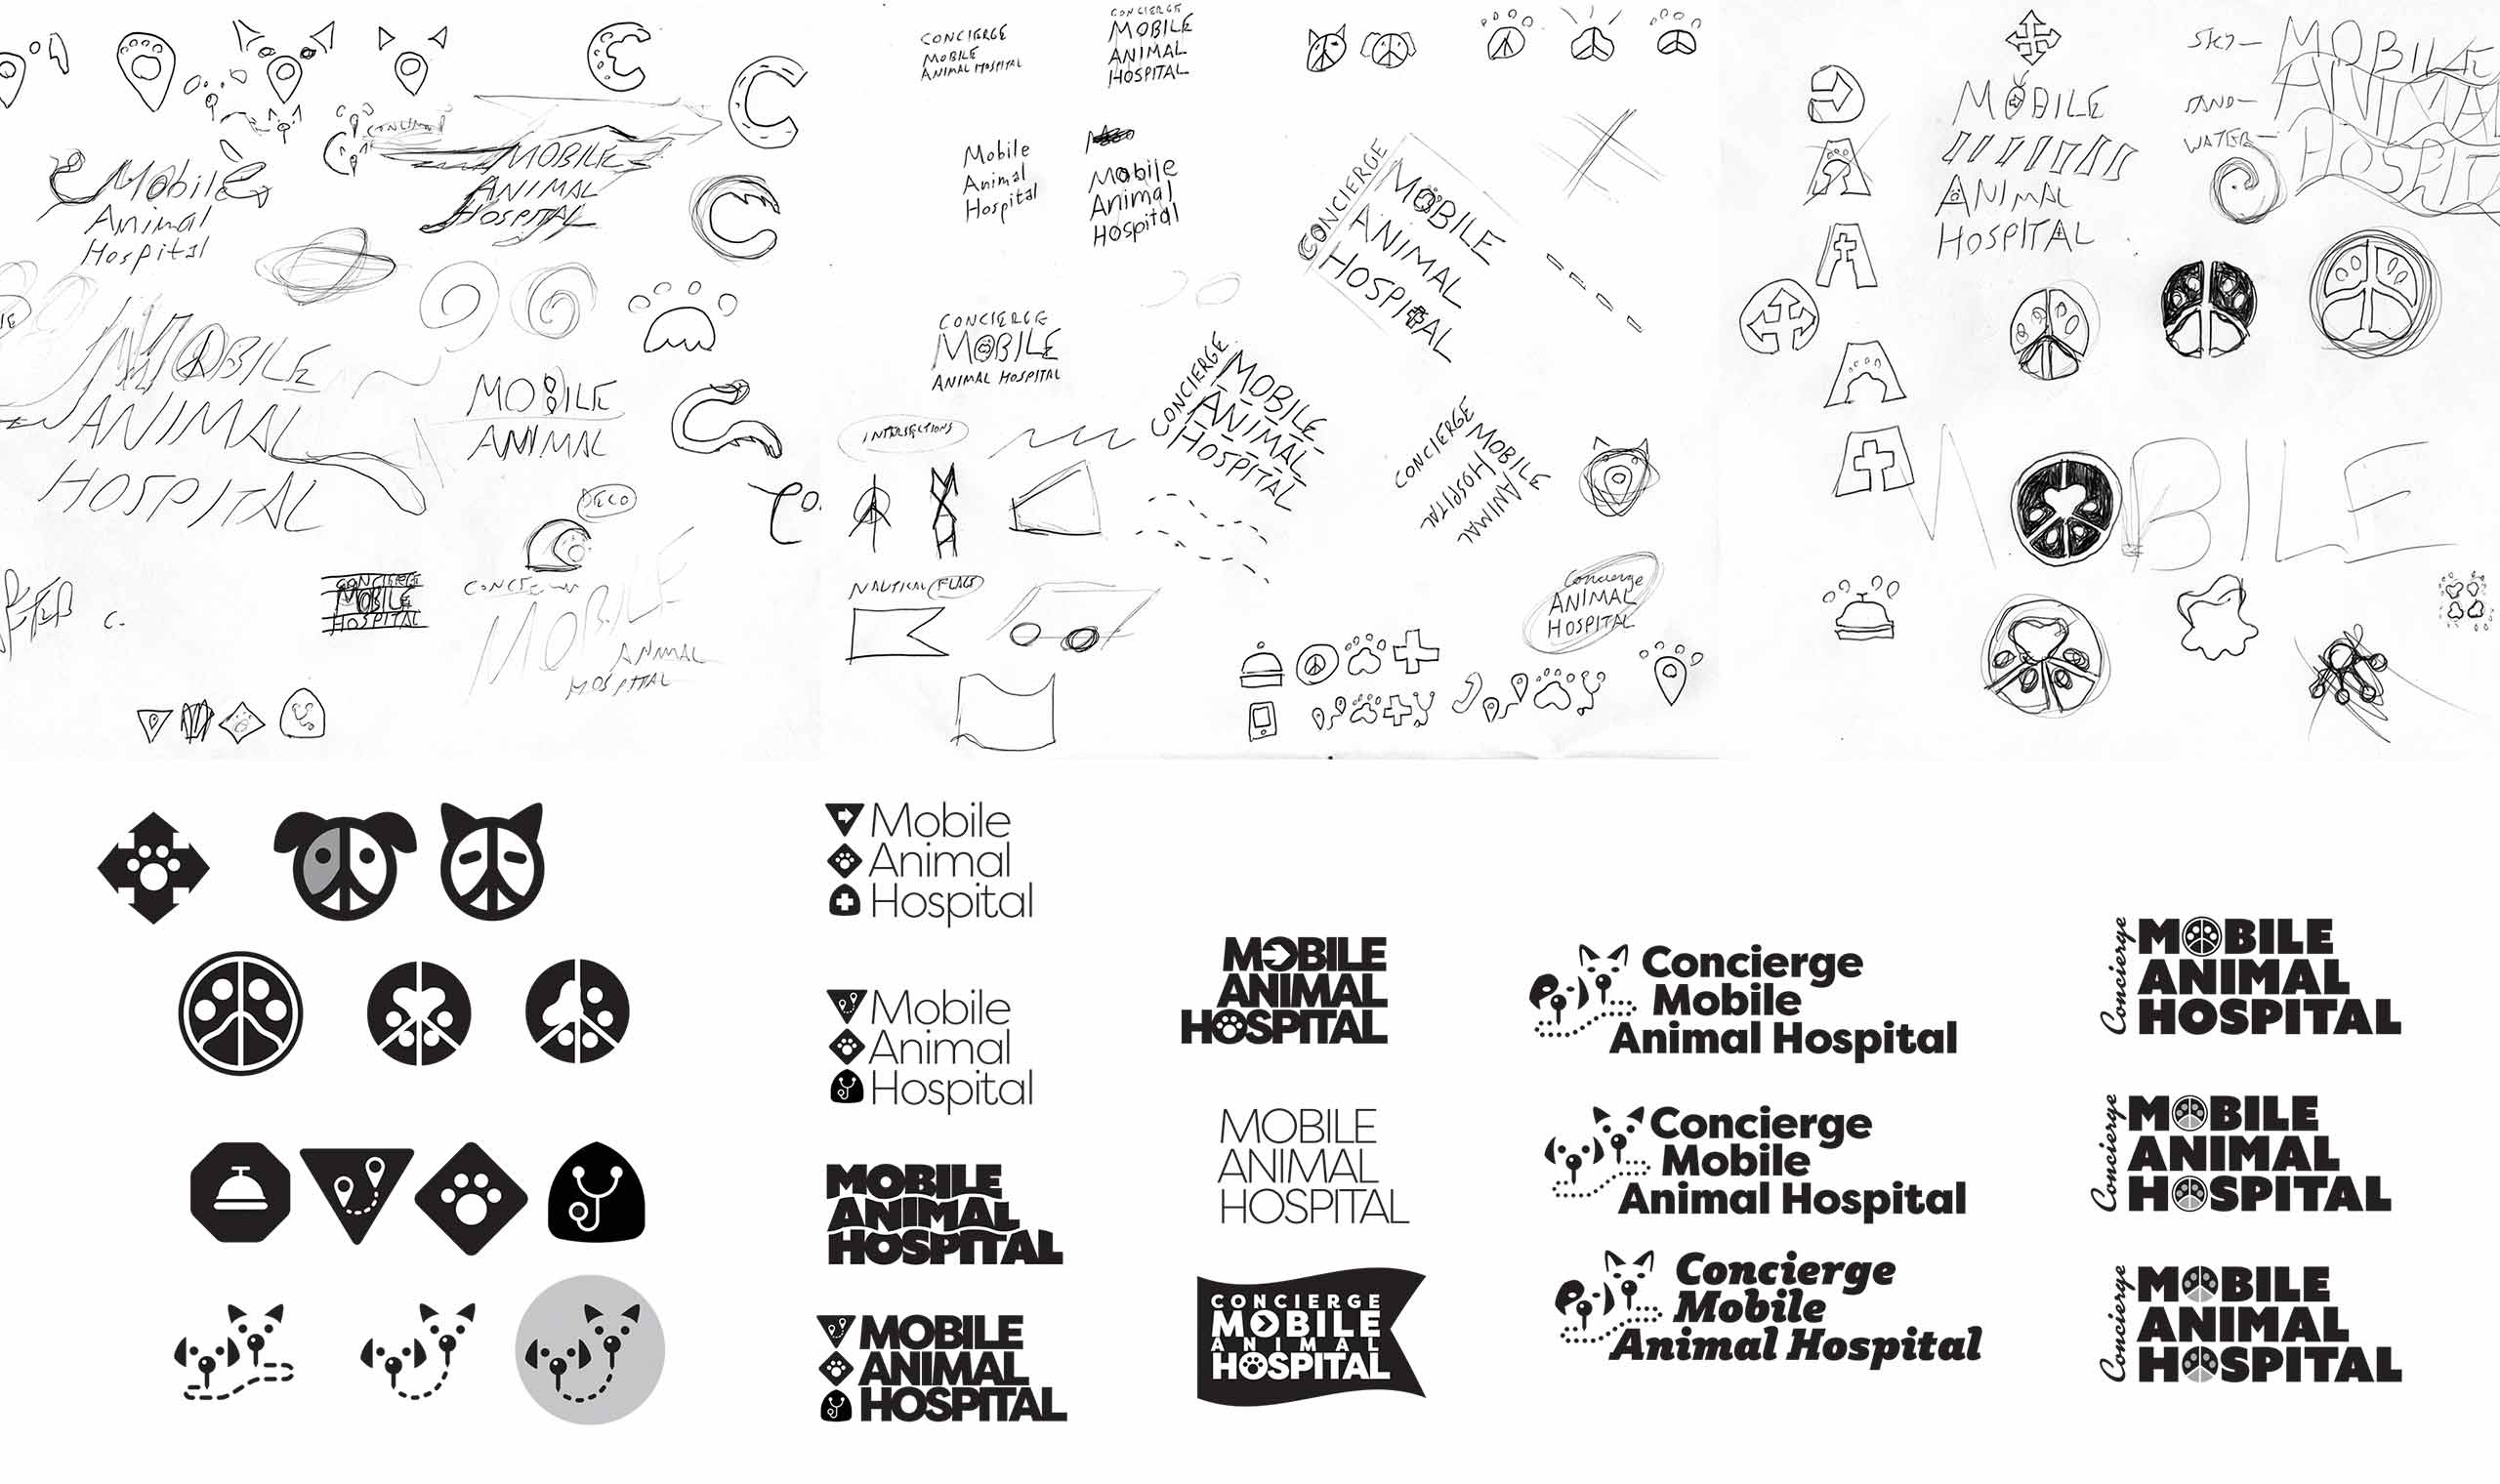 CONCIERGE
MOBILE
ANIMAL HOSPITAL
CONCIERGE
MOBILE
ANIMAL
HOSPITAL
SKY—
MOBILE
SAND—
ANIMAL
WATER—
HOSPITAL
Mobile
Animal
Hospital
MOBILE
ANIMAL
HOSPITAL
Mobile
Animal
Hospital
Mobile
Animal
Hospital
CONCIERGE
MOBILE
ANIMAL
HOSPITAL
MOBILE
ANIMAL
HOSPITAL
MOBILE
ANIMAL
HOSPITAL
MOBILE
ANIMAL
CONCIERGE
MOBILE
ANIMAL HOSPITAL
CONCIERGE
MOBILE
ANIMAL
HOSPITAL
CONCIERGE
MOBILE
ANIMAL
HOSPITAL
INTERSECTIONS
DECO
MOBILE
CONCIERGE
MOBILE
HOSPITAL
MOBILE
ANIMAL
HOSPITAL
C.
NAUTICAL FLAGS
Concierge
ANIMAL
HOSPITAL
Mobile
Animal
Hospital
Mobile
Animal
Hospital
MOBILE
ANIMAL
HOSPITAL
MOBILE
ANIMAL
HOSPITAL
MOBILE
ANIMAL
HOSPITAL
MOBILE
ANIMAL
HOSPITAL
CONCIERGE
MOBILE
ANIMAL
HOSPITAL
Concierge
Mobile
Animal Hospital
Concierge
Mobile
Animal Hospital
Concierge
Mobile
Animal Hospital
Concierge
MOBILE
ANIMAL
HOSPITAL
Concierge
MOBILE
ANIMAL
HOSPITAL
Concierge
MOBILE
ANIMAL
HOSPITAL